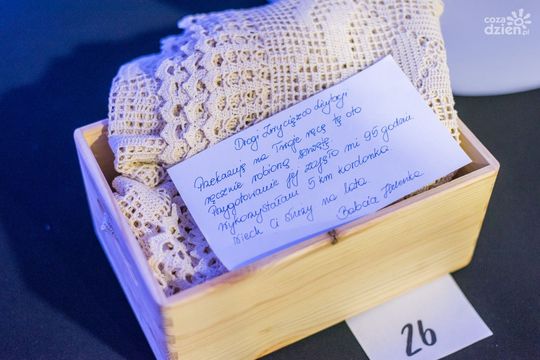 coza
dzień.pl
Drogi Zwycięzco licytacji
Przekazuję na Twoje ręce tę oto
ręcznie robioną serwetę
Przygotowanie jej zajęło mi 95 godzin
Wykorzystałam 5 km kordonka
Niech Ci służy na lata
Babcia Helenka
26